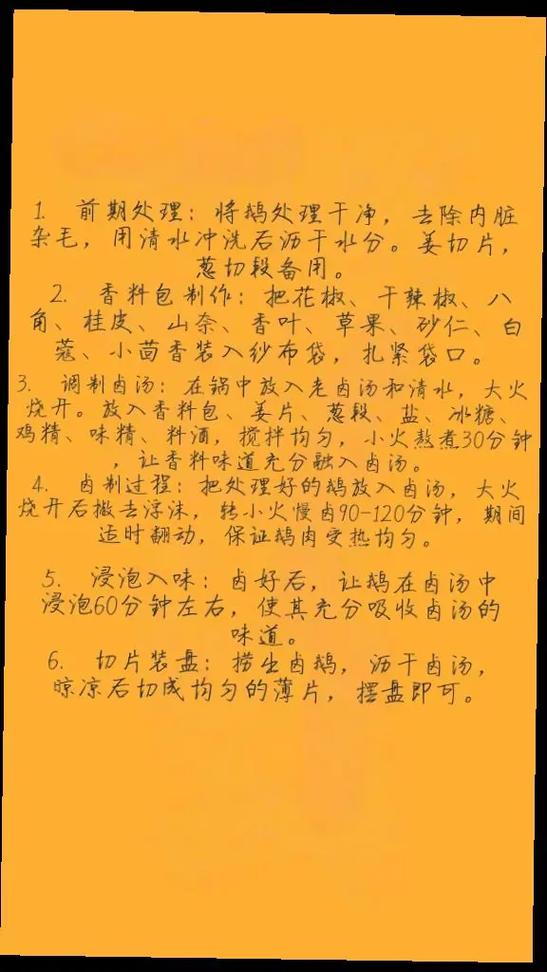 1. 前期处理：将鹅处理干净，去除内脏
杂毛，用清水冲洗后沥干水分。姜切片，
葱切段备用。
2. 香料包制作：把花椒、干辣椒、八
角、桂皮、山奈、香叶、草果、砂仁、白
蔻、小茴香装入纱布袋，扎紧袋口。
3. 调制卤汤：在锅中放入老卤汤和清水，大火
烧开。放入香料包、姜片、葱段、盐、冰糖、
鸡精、味精、料酒，搅拌均匀，小火熬煮30分钟
，让香料味道充分融入卤汤。
4. 卤制过程：把处理好的鹅放入卤汤，大火
烧开后撇去浮沫，转小火慢卤90-120分钟，期间
适时翻动，保证鹅肉受热均匀。
5. 浸泡入味：卤好后，让鹅在卤汤中
浸泡60分钟左右，使其充分吸收卤汤的
味道。
6. 切片装盘：捞出卤鹅，沥干卤汤，
晾凉后切成均匀的薄片，摆盘即可。